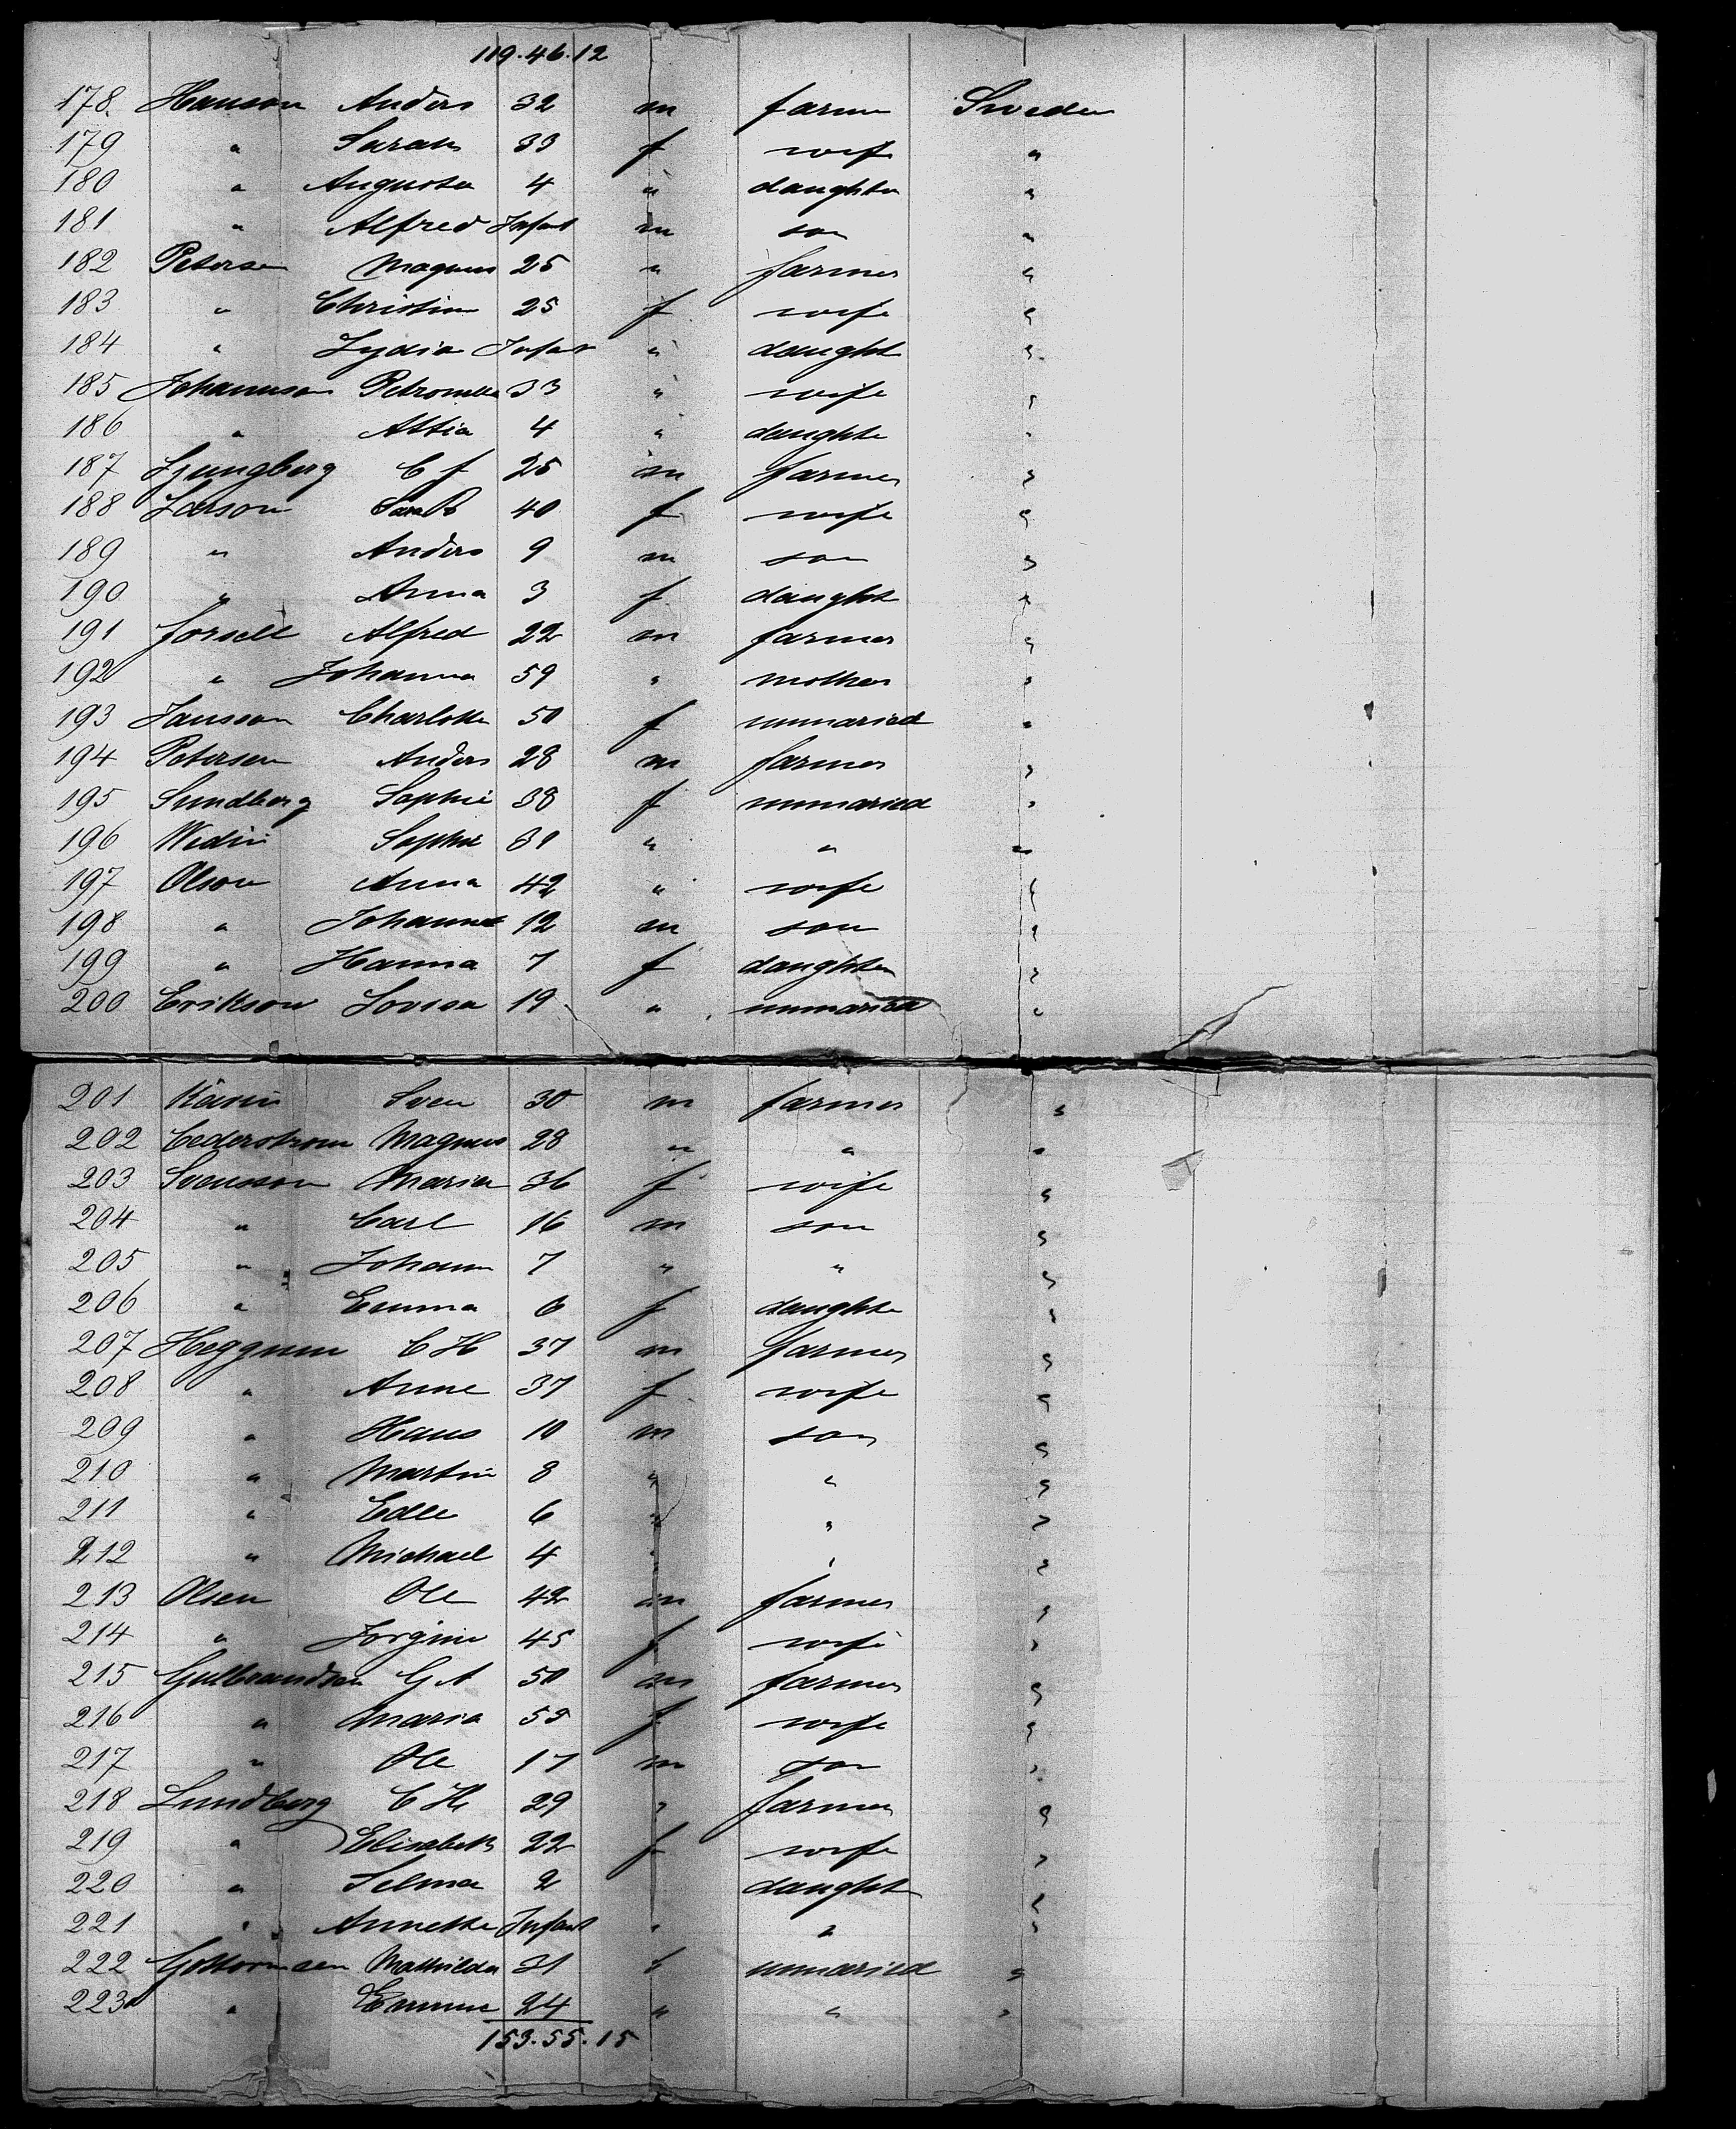 119.46.12
178. Hanson Anders 32 m farmer Sweden
179 " Sarah 33 f wife "
180 " Augusta 4 " daughter "
181 " Alfred Infant m son "
182 Peterson Magnus 25 " farmer "
183 " Christina 25 f wife "
184 " Lydia Infant " daught "
185 Johannson Petronella 33 " wife "
186 " 4 " daughte "
187 Ljungberg C f 25 m farmer "
188 Larson 40 f wife "
189 " Anders 9 m son "
190 " Anna 3 f daught "
191 Forsell Alfred 22 m farmer "
192 " Johanna 59 " mother "
193 Jansson Charlotta 50 f unmaried "
194 Petersen Anders 28 m farmer "
195 Sundberg Sophie 38 f unmaried "
196 Wedin Sophie " " "
197 Olson Anna 42 " wife "
198 " Johannes 12 m son "
199 " Hanna 7 f daughter "
200 Erikson Lovisa 19 " unmaried "
201 Sven 30 m farmer "
202 Cederstrom Magnus 28 " " "
203 Svensson Maria 36 f wife "
204 " Carl 16 m son "
205 " Johann 7 " " "
206 " Emma 6 f daughte "
207 Heggum C H 37 m farmer "
208 " Anne 37 f wife "
209 " Hans 10 m son "
210 " Martin 8 " " "
211 " Edle 6 " " "
212 " Michael 4 " " "
213 Olsen Ole 42 m farmer "
214 " Jorgine 45 f wife "
215 Gulbrandsen G A 50 m farmer "
216 " Maria 55 f wife "
217 " Ole 17 m son "
218 Lundberg C H 29 " farmer "
219 " Elisabeth 22 f wife "
220 " Selma 2 daught "
221 " Annette Infant " " "
222 Mathilda 31 f unmaried "
223 " Emma 24 " " "
153.55.15